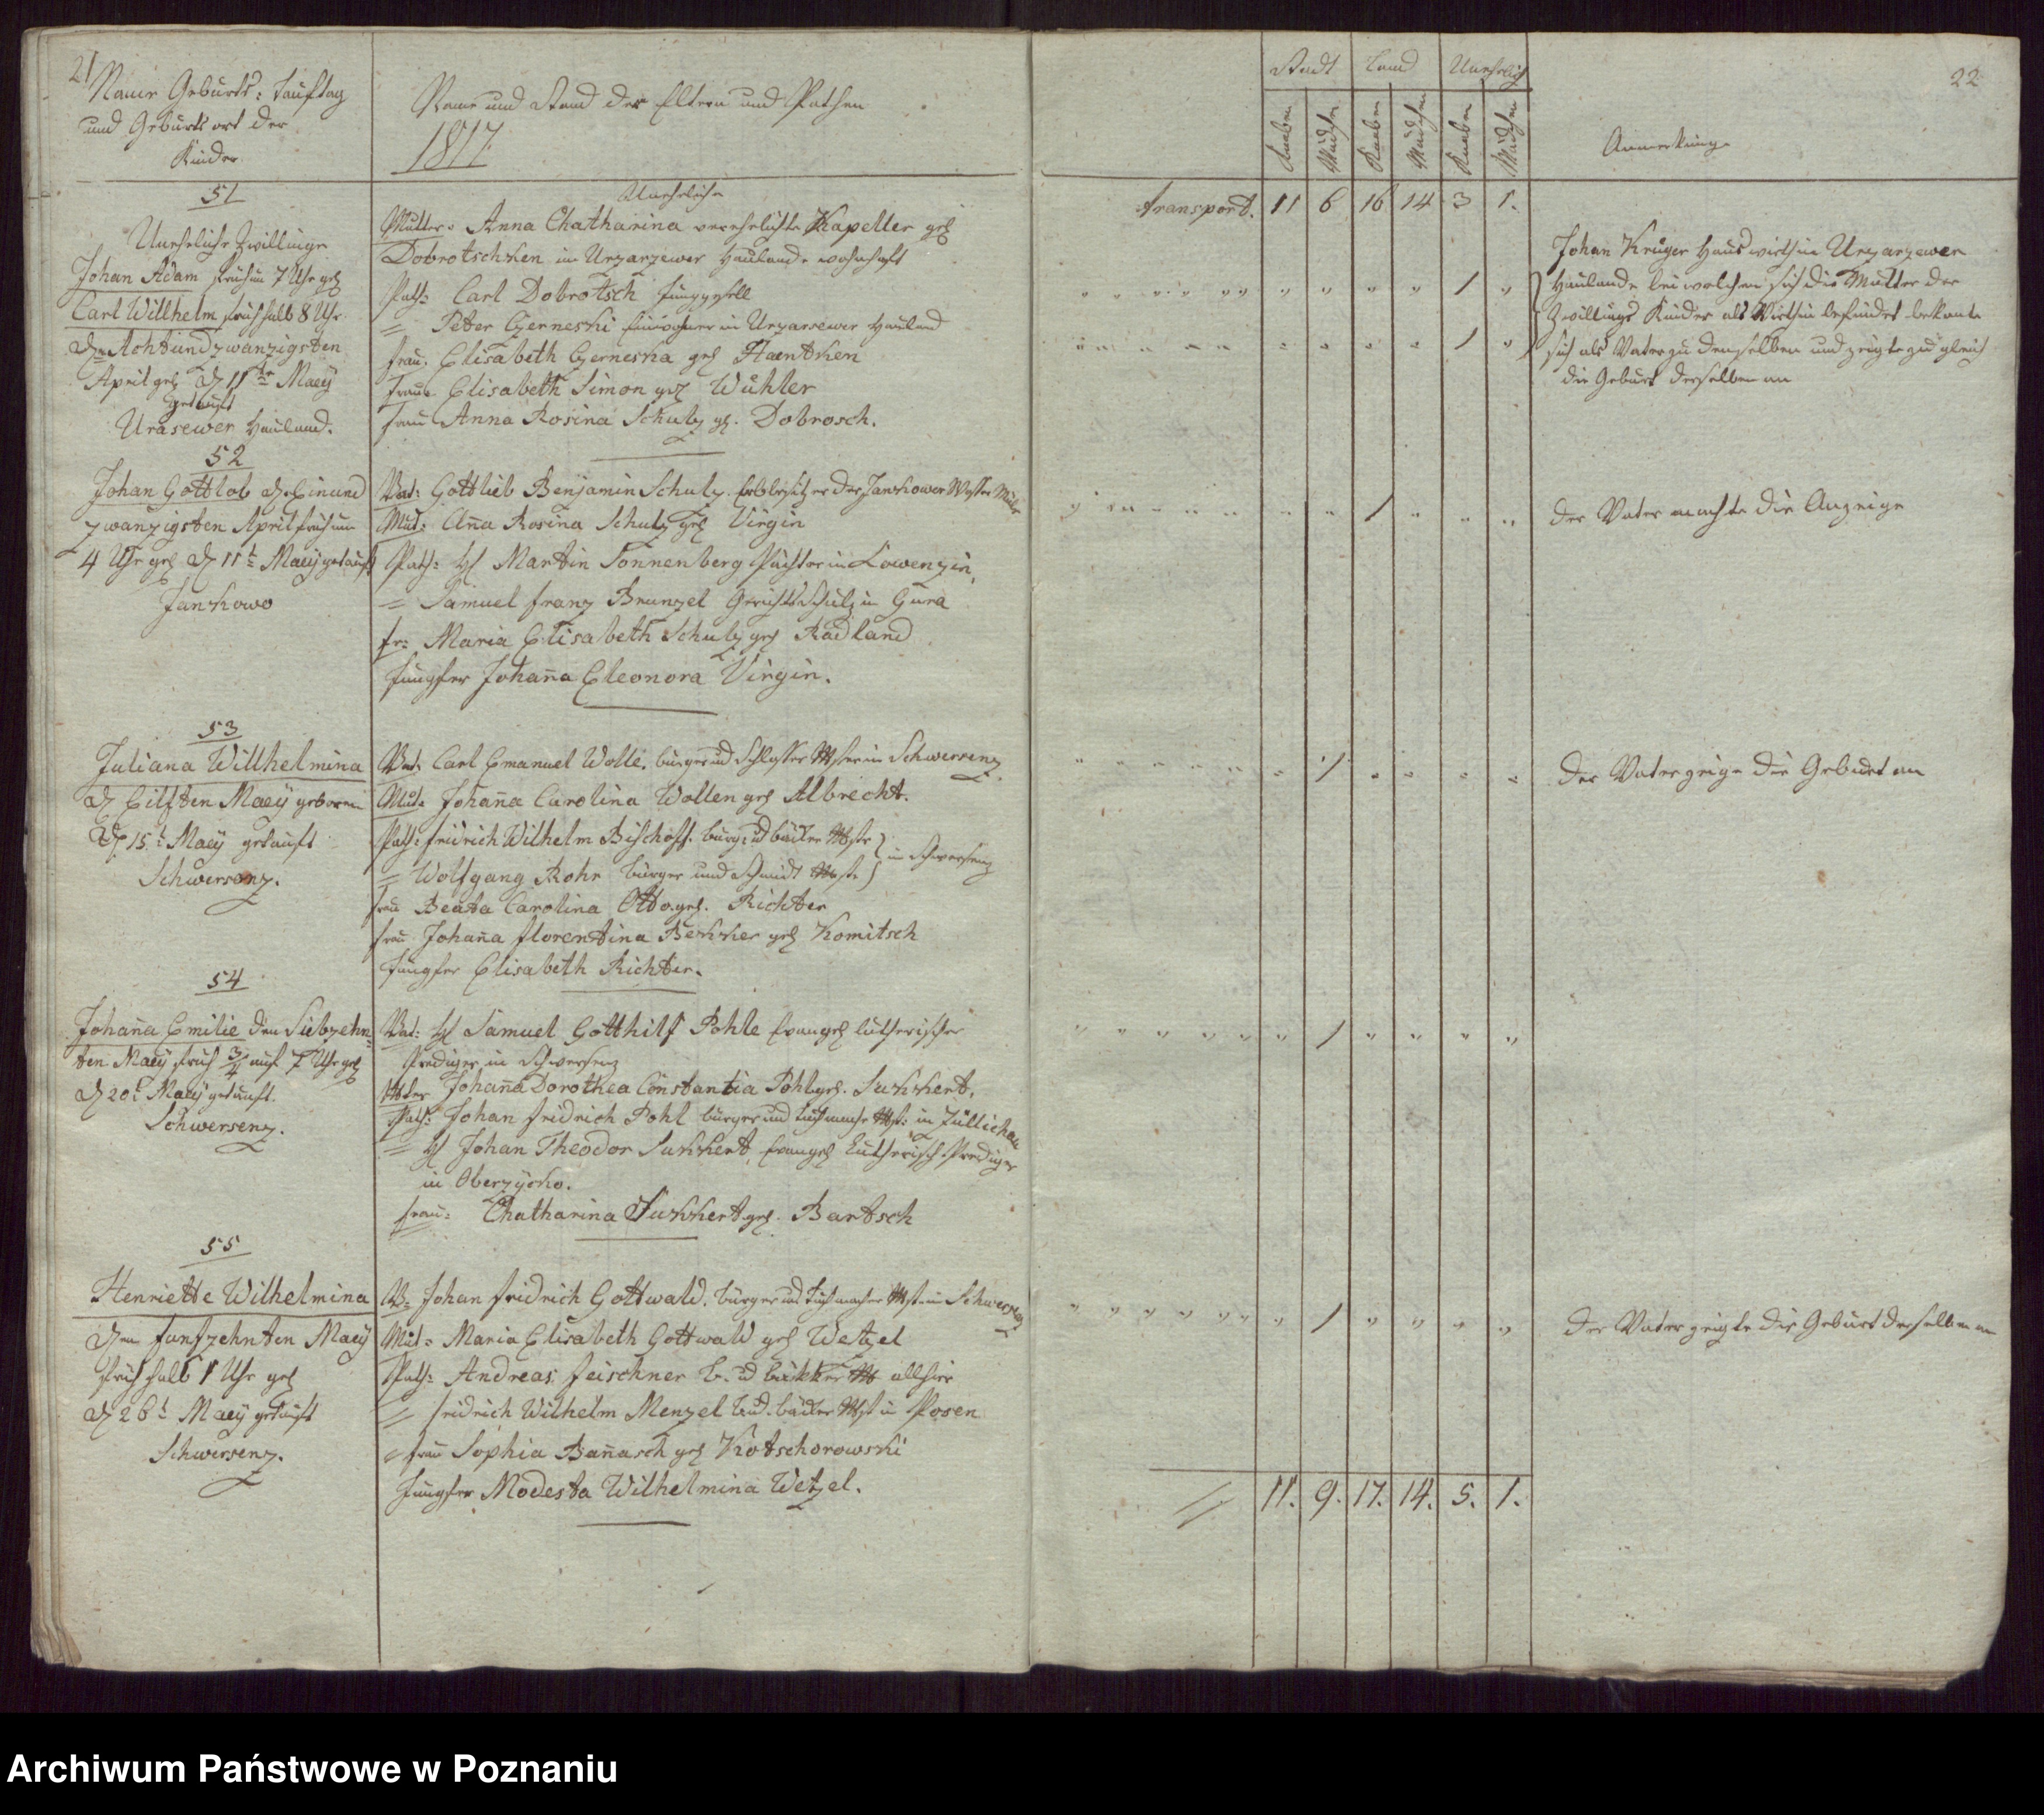 21
Name Geburts: Tauftag
und Geburts ort der
Kinder
Name und Stand der Eltern und Pathen
1817.
51
Uneheliche Zwillinge
Johan Adam früh um 7 Uhr geb
Carl Willhelm früh halb 8 Uhr
d Achtundzwanzigsten
April geb d 11te Maey
getauft
Urasewer Hauland.
Uneheliche
Mutter: Anna Chatharina verehelichte Kapeller geb
Dobrotschken in Urzarzewer Haulande wohnhaft
Path: Carl Dobrotsch Junggesell
= Peter Czerneski Einwohner in Urzarsewer Hauland
Frau. Elisabeth Czerneska geb Haentken
Frau Elisabeth Simon geb Wühler
Frau Anna Rosina Schulz g. Dobrosch.
52
Johan Gottlob d. Einund
zwanzigsten April früh um
4 Uhr geb d 11t Maey getauft
Jankowo
Vat: Gottlieb Benjamin Schulz. Erbbesitzer der Jankower Wasser Mühle
Mut: Aña Rosina Schulz geb Virgin
Path: H Martin Sonnenberg Pächter in Lowenzin,
= Samuel Franz Brunzel Gerichts Schulz in Gura
Fr: Maria Elisabeth Schulz geb Radland
Jungfer Johaña Eleonora Virgin.
53
Juliana Willhelmina
d Eilften Maey geboren
d 15t Maey getauft
Schwersenz.
Vat: Carl Emanuel Wolle. bürger ud Schlosser Mster in Schwersenz
Mut: Johaña Carolina Wollen geb Albrecht.
Path: Fridrich Wilhelm Bischoff. bürg: ud bäcker Mstr
= Wolfgang Rohr bürger und Schmidt Mstr } in Schwersenz
Frau Beata Carolina Otto geb. Richter
Frau Johaña Florentina Bekker geb Komitsch
Jungfer Elisabeth Richter.
54
Johaña Emilie den Siebzehn
ten Maey früh ¾ auf 7 Uhr geb
d 20t Maey getauft.
Schwersenz.
Vat: H Samuel Gotthilf Pohle Evangel lutherischer
Prediger in Schwersenz
Mter Johaña Dorothea Constantia Pohl geb. Sukkert.
Path: Johan Fridrich Pohl bürger und Tuchmacher Mst: in Züllichau
= H Johan Theodor Sukkert, Evangel Lutherisch. Prediger
in Oberzycko.
Frau: Chatharina Sukkert geb. Bartsch
55
Henriette Wilhelmina
den funfzehnten Maey
früh halb 1 Uhr geb
d 26t Maey getauft
Schwersenz.
V: Johan Fridrich Gottwald. bürger ud Tuchmacher Mst in Schwersenz
Mut: Maria Elisabeth Gottwald geb Wetzel
Path: Andreas Feischner b. ud bäkker M allhier
= Fridrich Wilhelm Menzel b ud. bäcker Mst in Posen
= Frau Sophia Bañasch geb Kotschorowski
Jungfer Modesta Wilhelmina Wetzel.
22
Stadt Land Unehelich
Knaben Mädchen Knaben Mädchen Knaben Mädchen
Anmerkung
Transport. 11 6 16 14 3 1.
Johan Kruger Hauswirth in Urzarzewer
Haulande bei welchen sich die Mutter der
Zwillings Kinder als Wirthin befindet bekante
sich als Vater zu denselben und zeigte zu gleich
die Geburt derselben an
1
1
1 der Vater machte die Anzeige
1 der Vater zeige die Geburt an
1
1 der Vater zeigte die Geburt derselben an
11. 9. 17. 14. 5. 1.
Archiwum Państwowe w Poznaniu